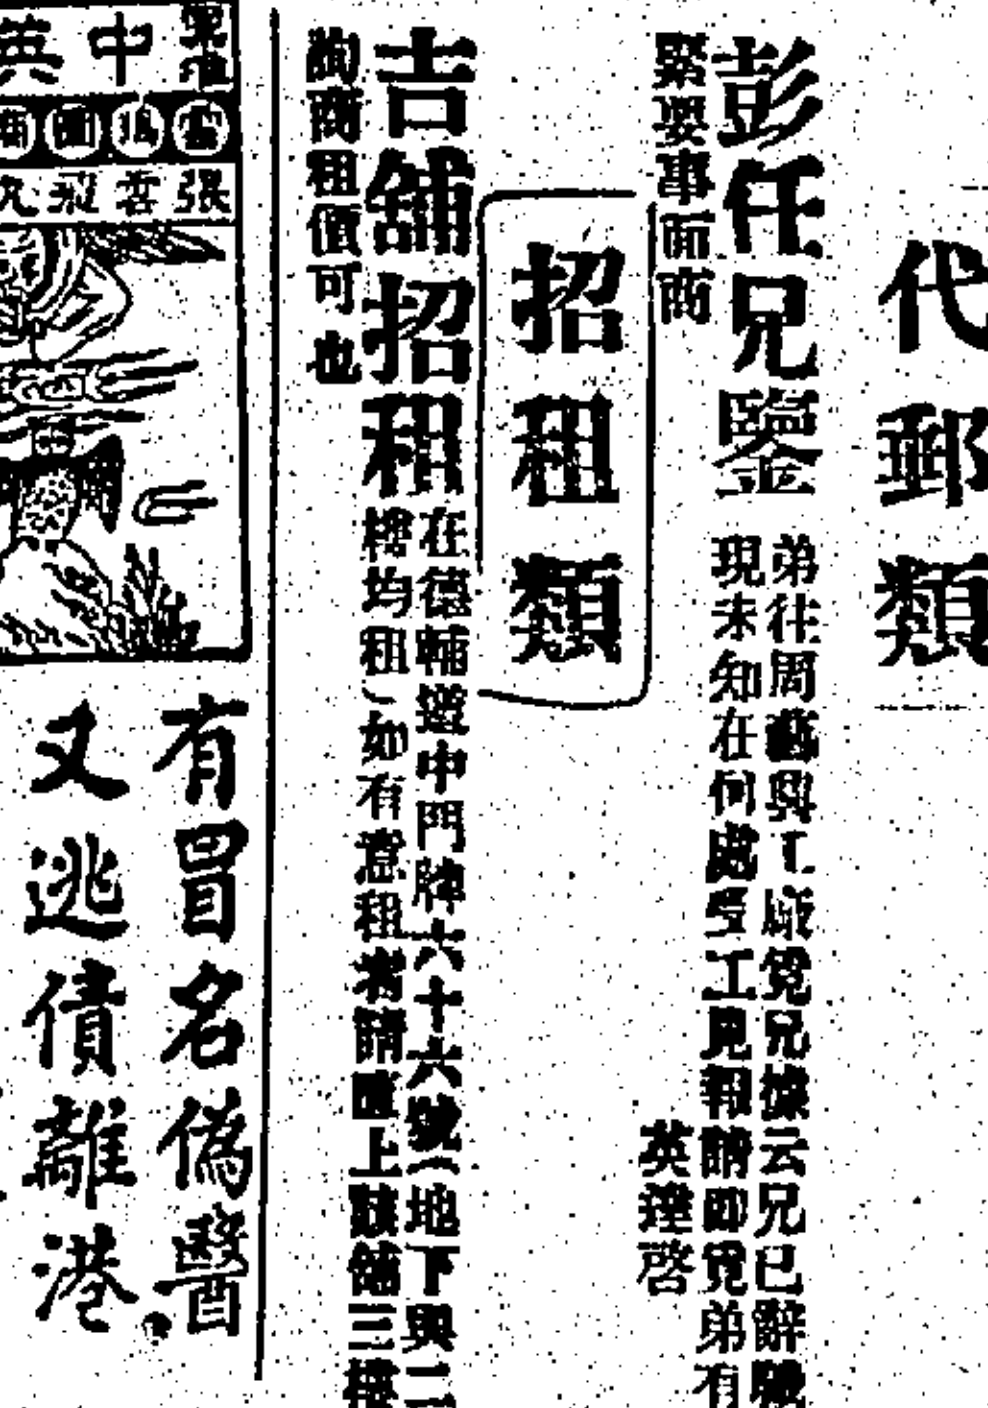 代郵類
彭任兄鑒
弟往周藝興工廠覓兄據云兄已辭職
現未知在何處受工見報請即覓弟有
緊要事面商
英達啓
招租類
吉舖招租
在德輔道中門牌六十六號(地下與二
樓均租)如有意租者請匯上該舖三樓
詢商租價可也
中英
張雲飛
有冒名偽醫
又逃債離港